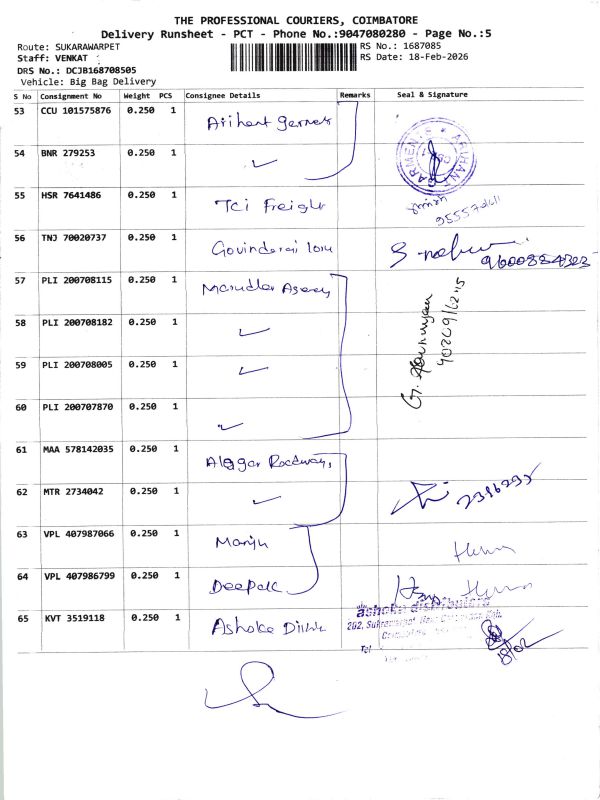 THE PROFESSIONAL COURIERS, COIMBATORE
Delivery Runsheet - PCT - Phone No.:9047080280 - Page No.:5
Route: SUKARAWARPET
Staff: VENKAT
DRS No.: DCJB168708505
Vehicle: Big Bag Delivery
RS No.: 1687085
RS Date: 18-Feb-2026
S No Consignment No Weight PCS Consignee Details Remarks Seal & Signature
53 CCU 101575876 0.250 1 Arihant
54 BNR 279253 0.250 1
55 HSR 7641486 0.250 1 Tci Freight
56 TNJ 70020737 0.250 1 9600884323
57 PLI 200708115 0.250 1
58 PLI 200708182 0.250 1
59 PLI 200708005 0.250 1
60 PLI 200707870 0.250 1
61 MAA 578142035 0.250 1 Roadways
62 MTR 2734042 0.250 1
63 VPL 407987066 0.250 1 Manju
64 VPL 407986799 0.250 1 Deepak
ashoka distributors
65 KVT 3519118 0.250 1 Ashoka
Tel
18/02